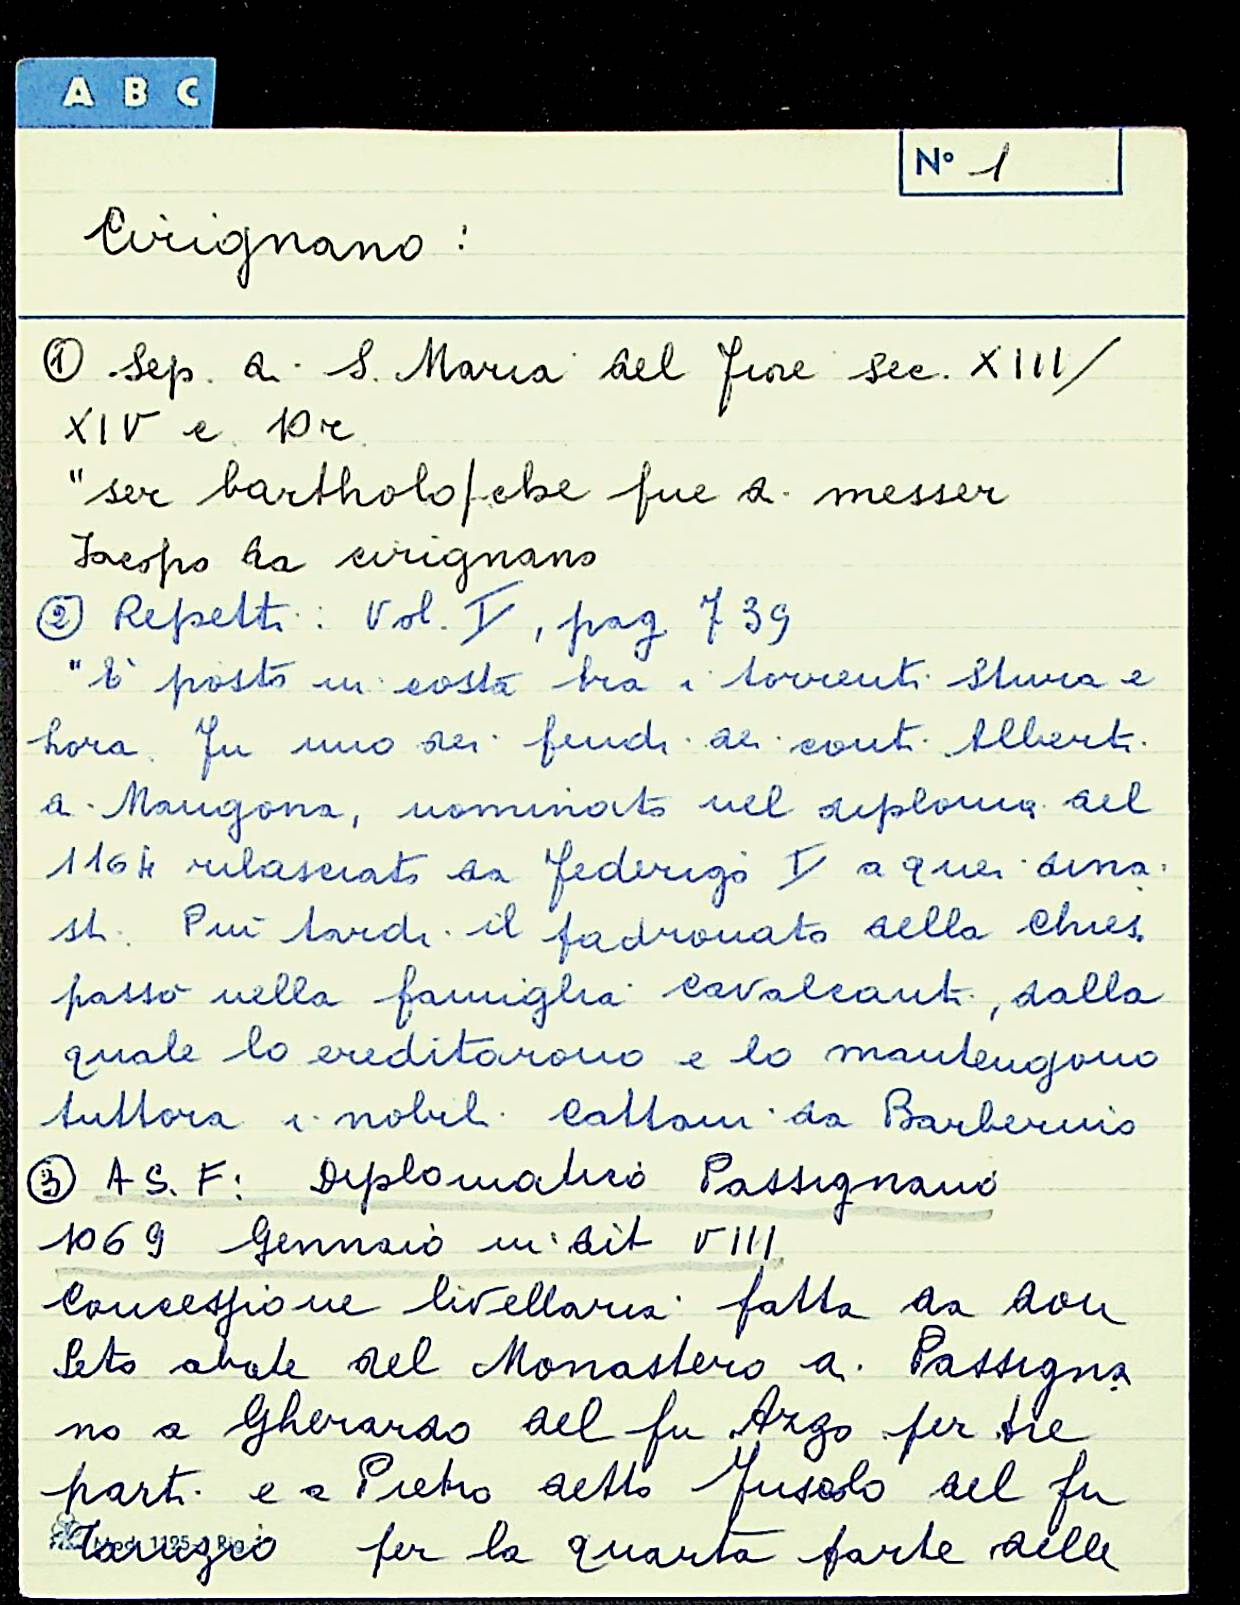 A B C
N° 1
Cirignano :
① Sep. di S. Maria del Fiore sec. XIII/
XIV c. 10r
"ser bartholo che fue di messer
Iacopo da cirignano
② Repetti : Vol. V, pag 739
"È posto in costa tra i torrenti Stura e
hora. Fu uno dei feudi dei conti Alberti
di Mangona, nominato nel diploma del
1164 rilasciato da Federigo I a quei dina
sti. Più tardi il padronato della chiesa
passò nella famiglia Cavalcanti, dalla
quale lo ereditarono e lo mantengono
tuttora i nobili Cattani da Barberino
③ A S. F: Diplomatico Passignano
1069 Gennaio indit VIII
Concessione livellaria fatta da don
Leto abate del Monastero di Passigna
no a Gherardo del fu Azzo per tre
parti e a Pietro detto Fusolo del fu
per la quarta parte delle